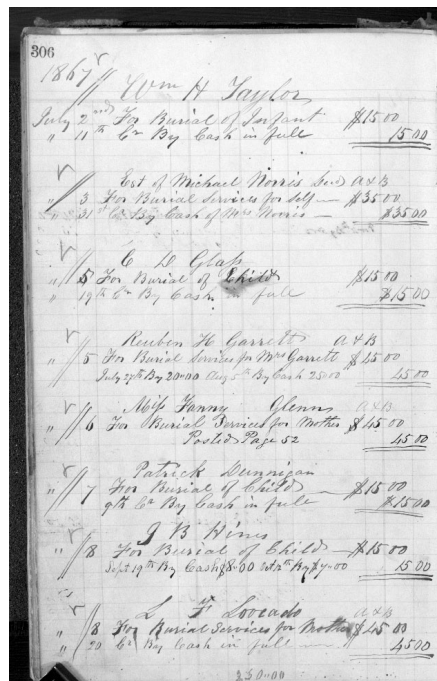 306
1867
Wm H Taylor
July 2nd For Burial of Infant $15 00
" 11th Cr By Cash in full 15 00
Est of Michael Norris Decd A & B
" 3 For Burial Services for Self — $35 00
" 31st Cr By Cash of Mrs Norris — $35 00
C D Glass
" 5 For Burial of Child $15 00
" 19th Cr By Cash in full $15 00
Reuben H Garrett A & B
" 5 For Burial Services for Mrs Garrett $45 00
July 27th By 20=00 Aug 5th By Cash 25=00 45 00
Miss Fanny Glenn A & B
" 6 For Burial Services for Mother $45 00
Posted Page 52 45 00
Patrick Dunnigan
" 7 For Burial of Child — $15 00
9th Cr By Cash in full $15 00
J B Hines
" 8 For Burial of Child — $15 00
Sept 19th By Cash $8=00 Oct 12th By $7=00 15 00
L F Lovcado A & B
" 8 For Burial Services for Mother $45 00
" 20 Cr By Cash in full — 45 00
230=00